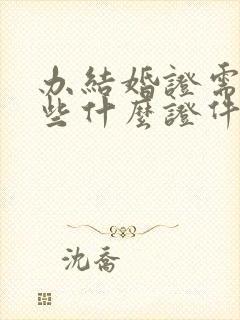 办結婚證需
些什麼證件
沈喬